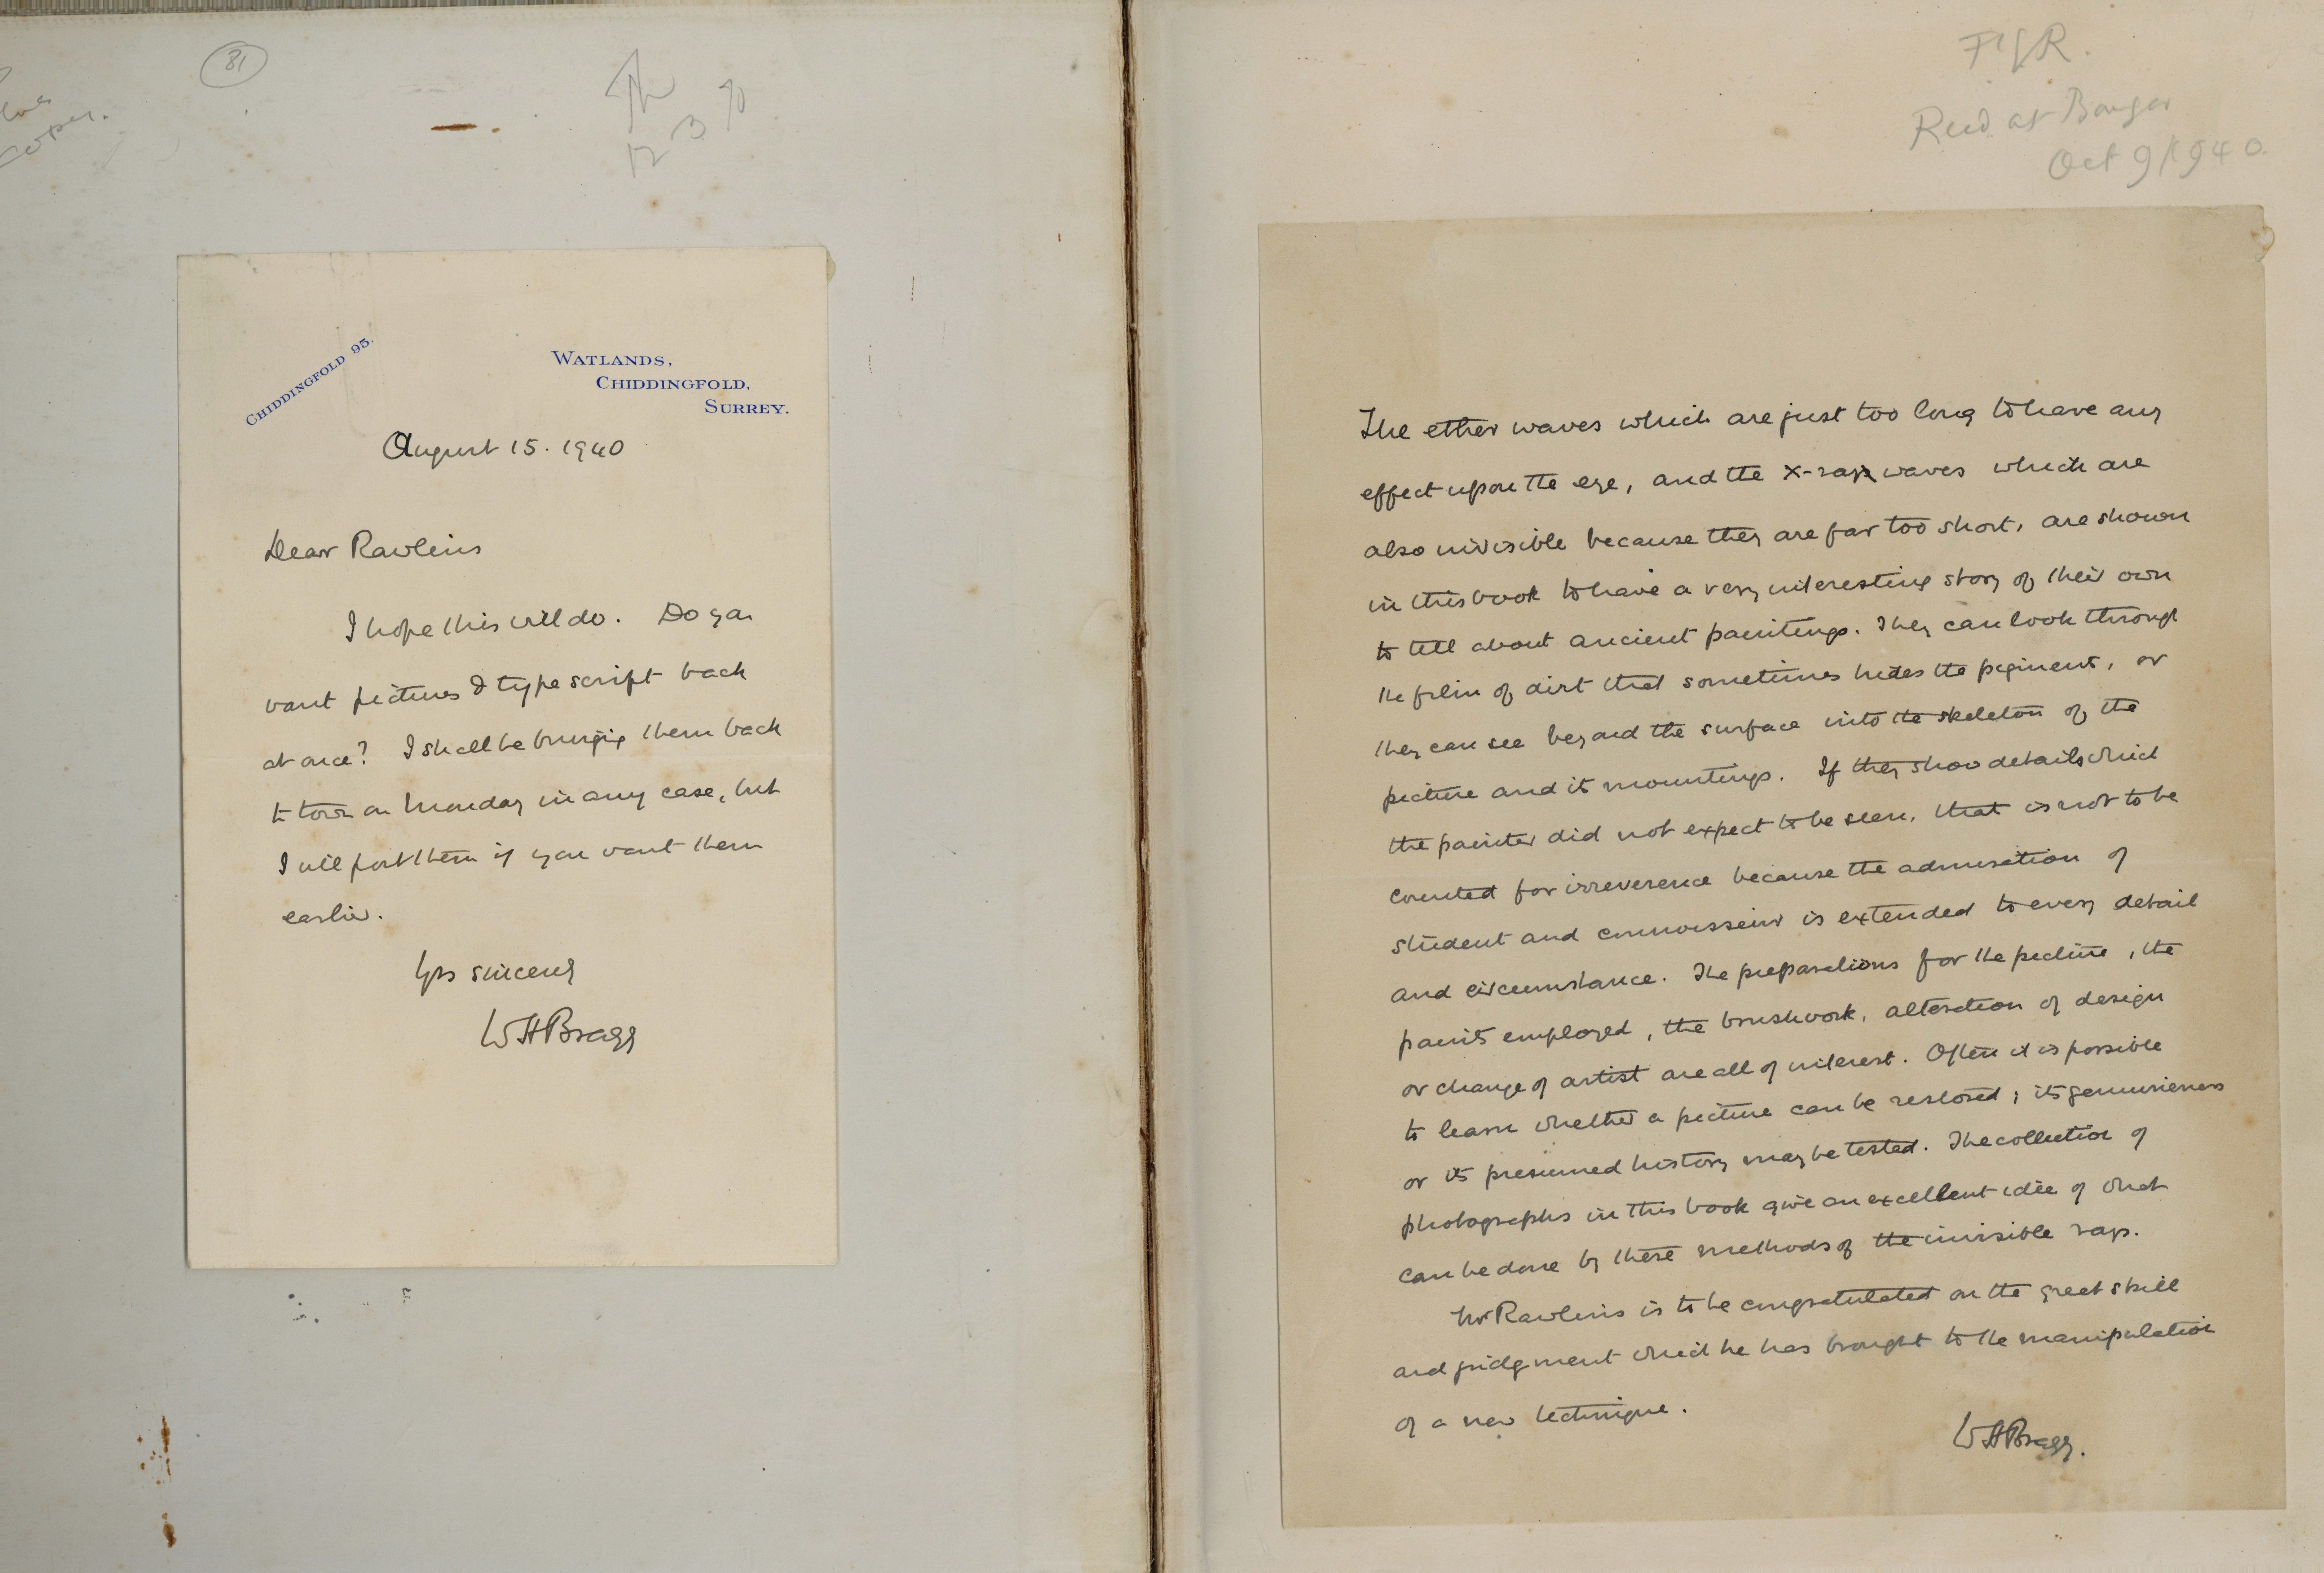 81
CHIDDINGFOLD 95.
WATLANDS,
CHIDDINGFOLD,
SURREY.
August 15. 1940
Dear Rawlins
I hope this will do. Do you
want pictures & typescript back
at once? I shall be bringing them back
to town on Monday in any case, but
I will post them if you want them
earlier.
Yrs sincerely
WHBragg
FIGR.
Recd. at Bangor
Oct 9/1940.
The ether waves which are just too long to have any
effect upon the eye, and the X-ray waves which are
also invisible because they are far too short, are shown
in this book to have a very interesting story of their own
to tell about ancient paintings. They can look through
the film of dirt that sometimes hides the pigment, or
they can see beyond the surface into the skeleton of the
picture and its mountings. If they show details which
the painter did not expect to be seen, that is not to be
counted for irreverence because the admiration of
student and connoisseur is extended to every detail
and circumstance. The preparations for the picture, the
paints employed, the brushwork, alteration of design
or change of artist are all of interest. Often it is possible
to learn whether a picture can be restored; its genuineness
or its presumed history may be tested. The collection of
photographs in this book give an excellent idea of what
can be done by these methods of the invisible rays.
Mr Rawlins is to be congratulated on the great skill
and judgment which he has brought to the manipulation
of a new technique.
WHBragg.